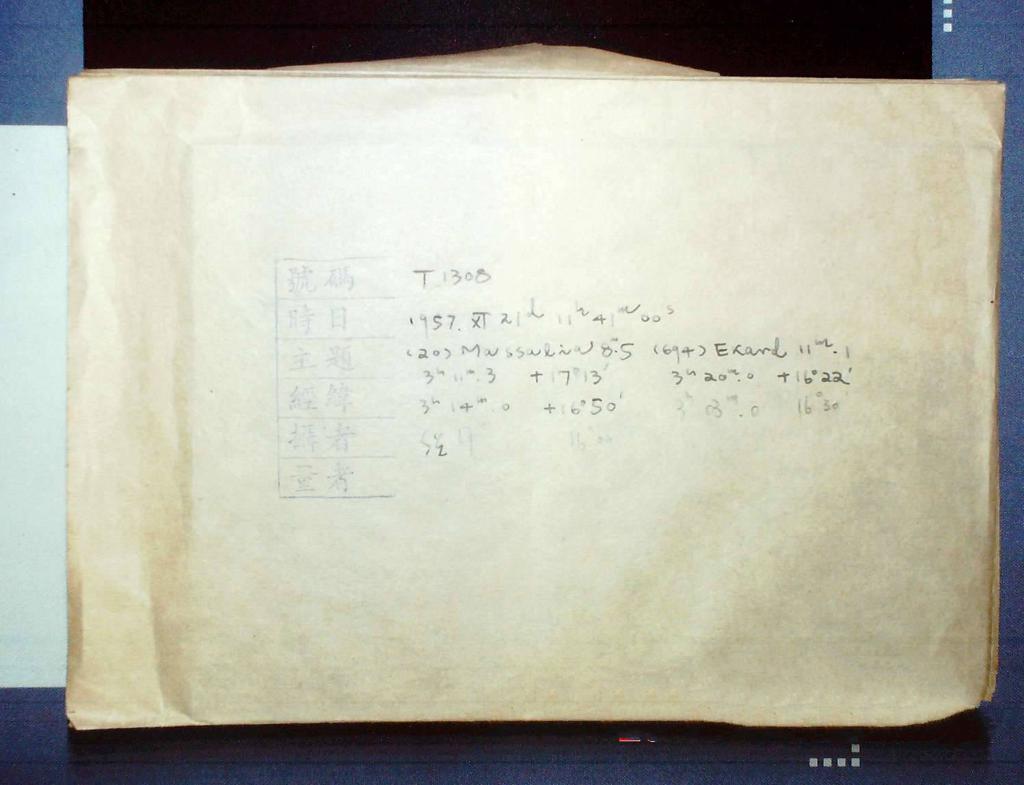 號碼 T 1308
時日 1957. XI 21d 11h 41m 00s
主題 (20) Massalia 8m.5 (694) Ekard 11m.1
3h 11m.3 +17°13' 3h 20m.0 +16°22'
經緯 3h 14m.0 +16°50' 3h 03m.0 16°30'
攝者
量者